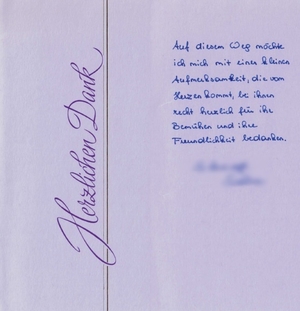 Herzlichen Dank
Auf diesem Weg möchte
ich mich mit einer kleinen
Aufmerksamkeit, die vom
Herzen kommt, bei ihnen
recht herzlich für ihr
Bemühen und ihre
Freundlichkeit bedanken.